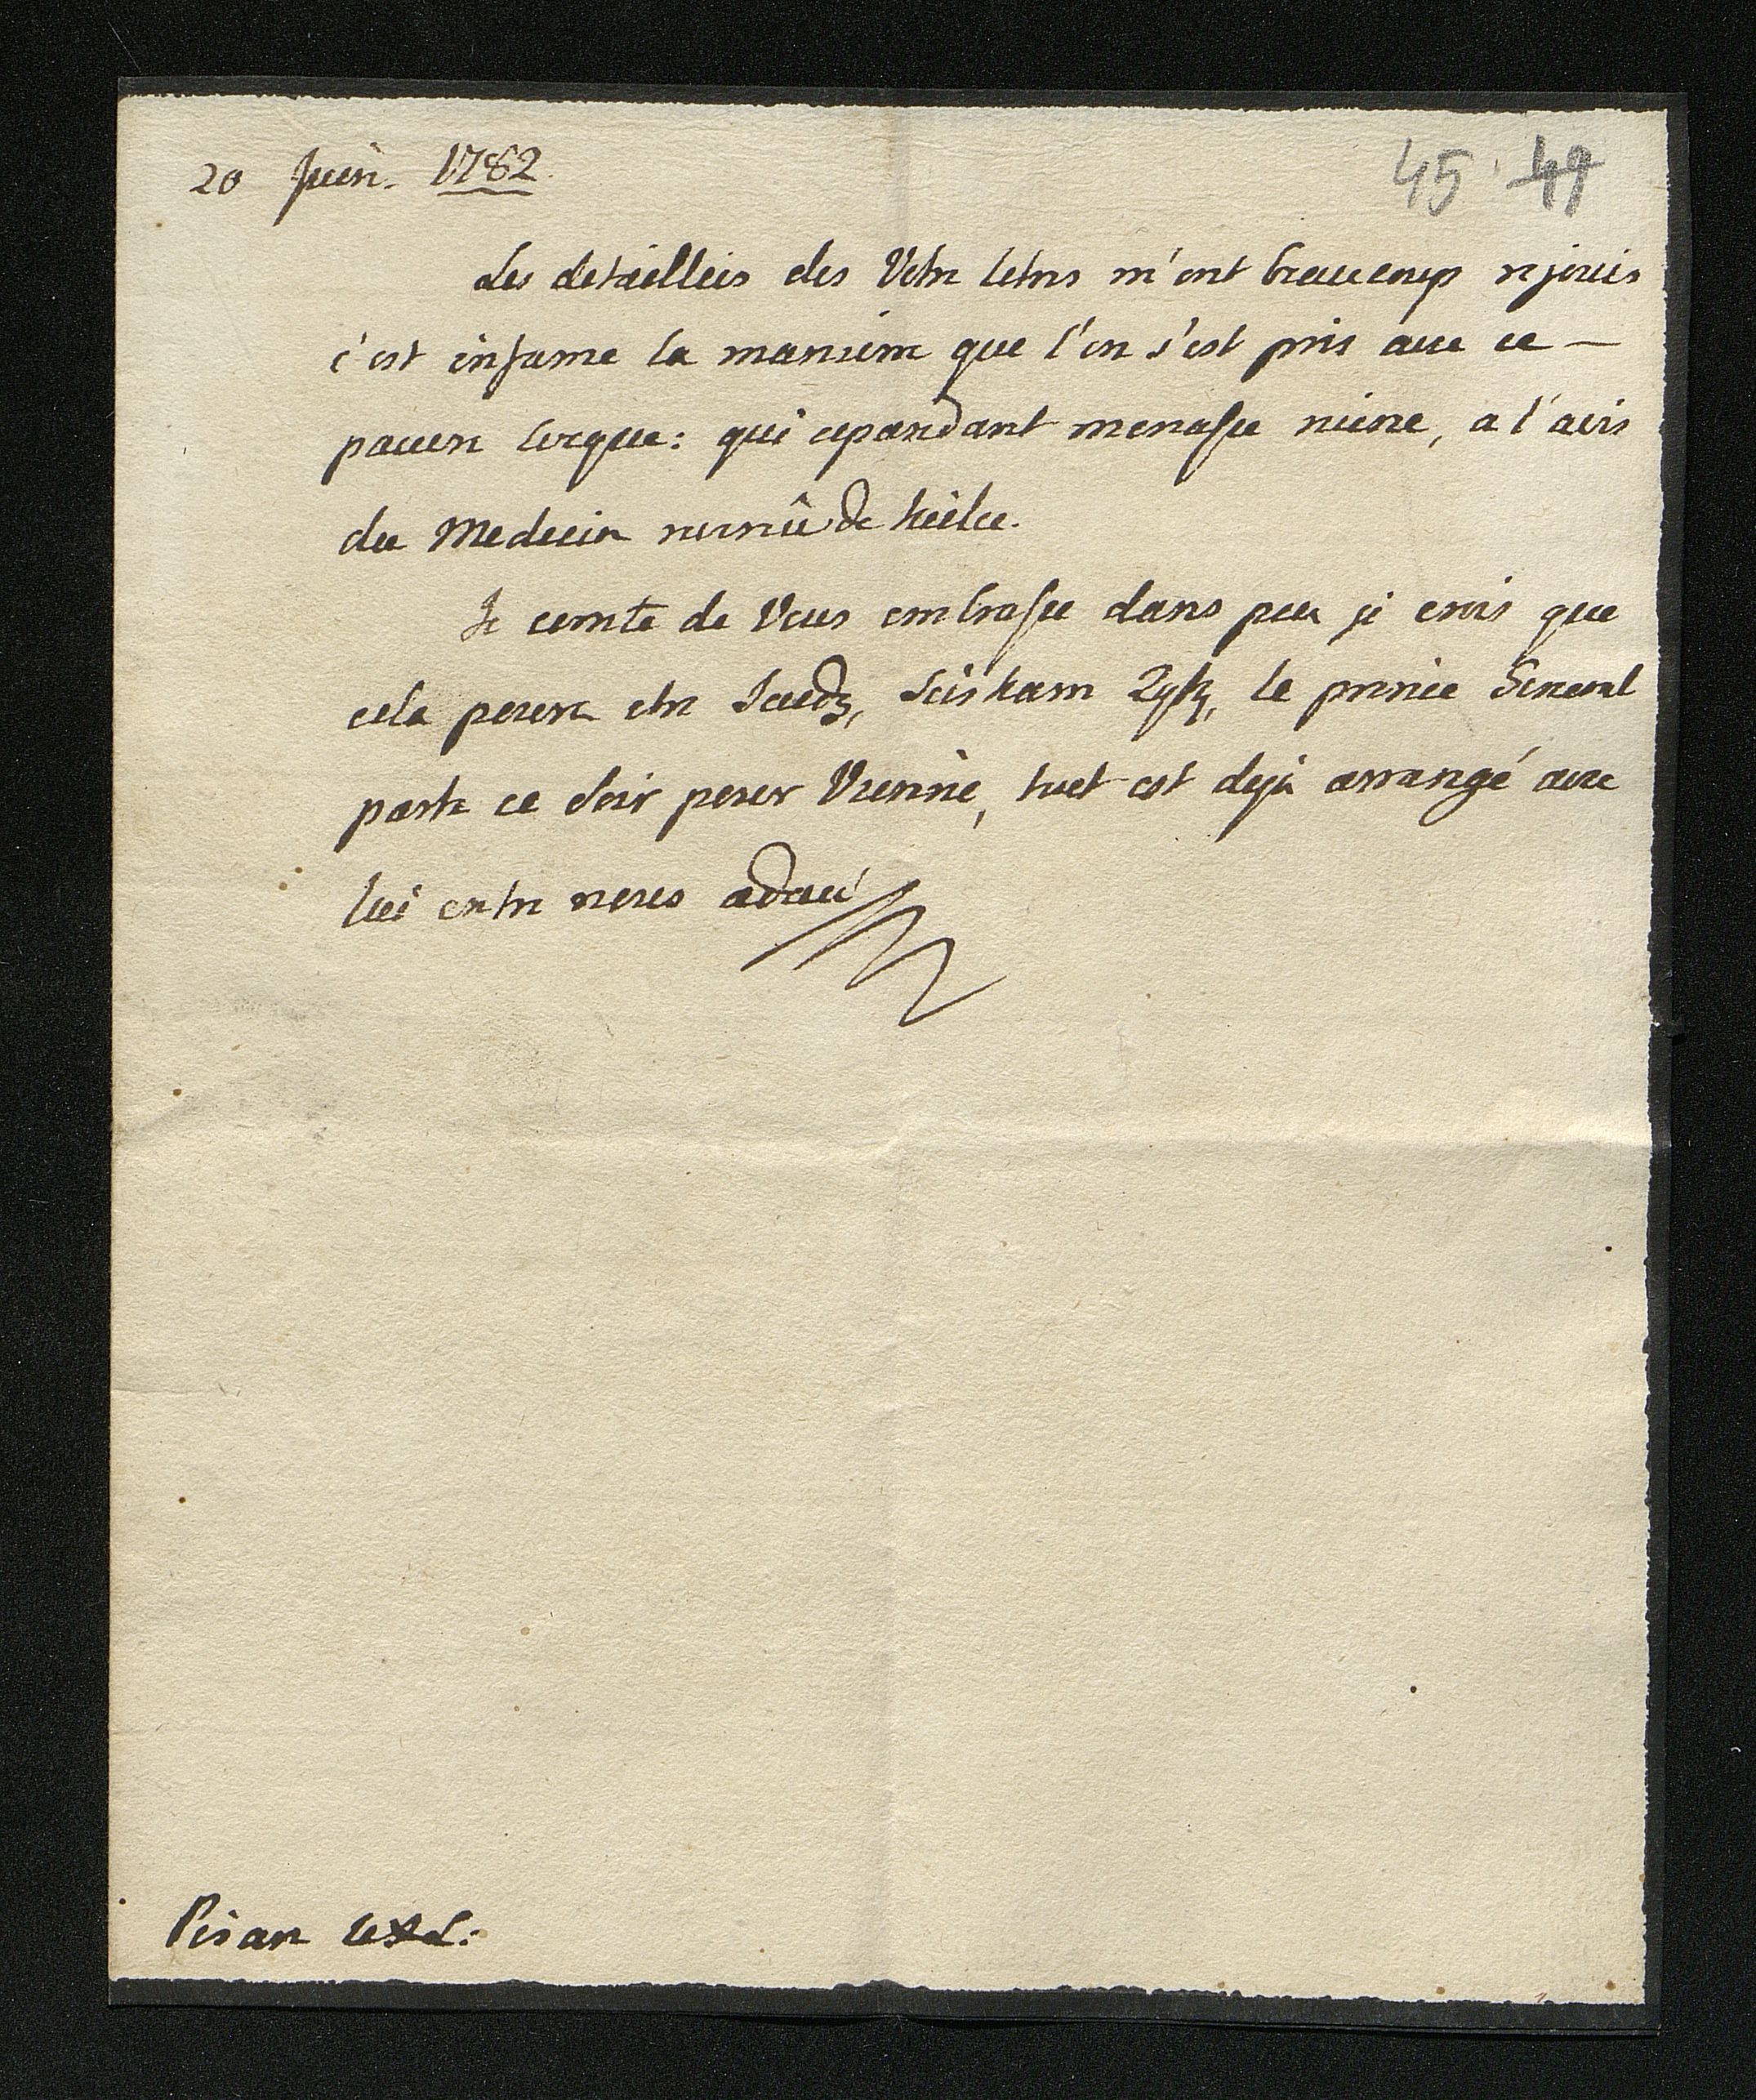 20 Juin. 1782.
45 47
Les detaillèis des Votre letres m'ont beaucoup rejouis
c'est infame la maniere que l'on s'est pris avec ce —
pauvre : qui cepandant menasse ruine, a l'avis
du Medecin
Je comte de Vous embrasse dans peu je crois que
cela poura etre le prince General
parte ce soir pour Vienne, tout est deja arrangé avec
lui entre nous adieu